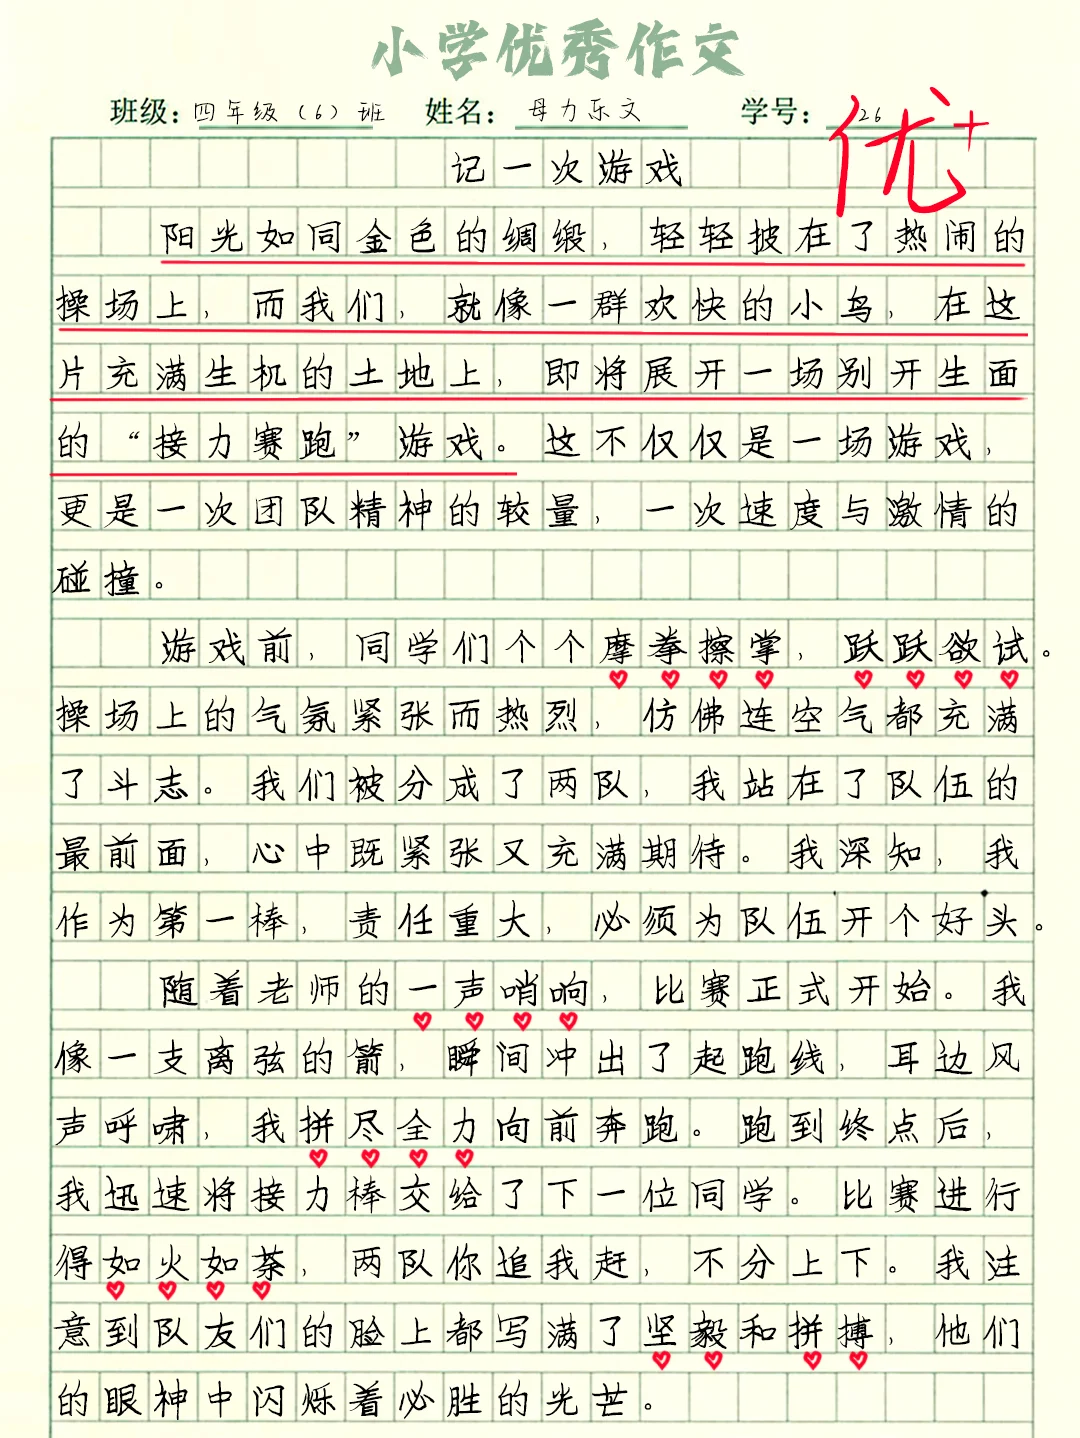 小学优秀作文
班级：四年级（6）班 姓名：母力乐文 学号：26
优+
记一次游戏
阳光如同金色的绸缎，轻轻披在了热闹的
操场上，而我们，就像一群欢快的小鸟，在这
片充满生机的土地上，即将展开一场别开生面
的“接力赛跑”游戏。这不仅仅是一场游戏，
更是一次团队精神的较量，一次速度与激情的
碰撞。
游戏前，同学们个个摩拳擦掌，跃跃欲试。
操场上的气氛紧张而热烈，仿佛连空气都充满
了斗志。我们被分成了两队，我站在了队伍的
最前面，心中既紧张又充满期待。我深知，我
作为第一棒，责任重大，必须为队伍开个好头。
随着老师的一声哨响，比赛正式开始。我
像一支离弦的箭，瞬间冲出了起跑线，耳边风
声呼啸，我拼尽全力向前奔跑。跑到终点后，
我迅速将接力棒交给了下一位同学。比赛进行
得如火如荼，两队你追我赶，不分上下。我注
意到队友们的脸上都写满了坚毅和拼搏，他们
的眼神中闪烁着必胜的光芒。